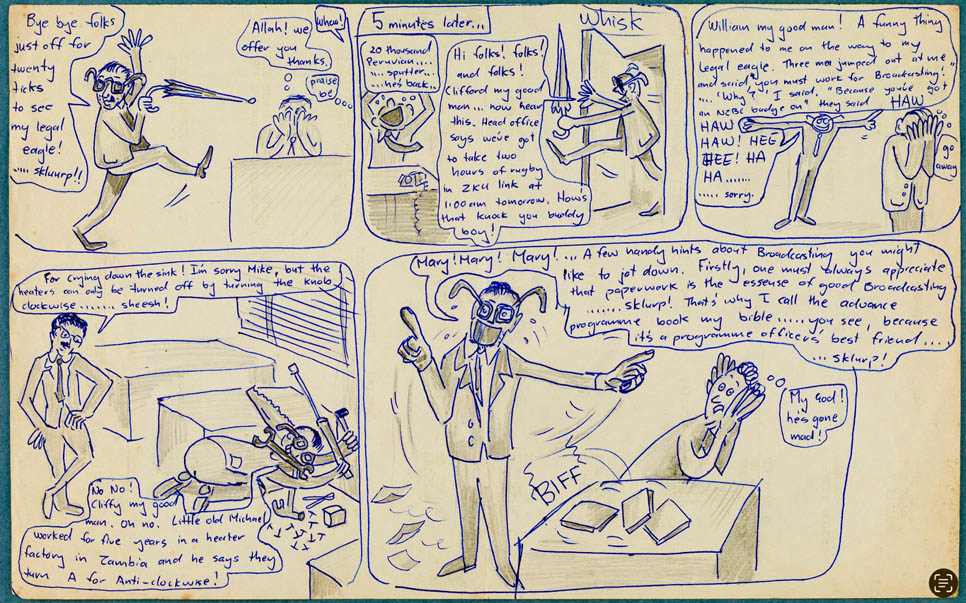 Bye bye folks
just off for
twenty
ticks
to see
my legal
eagle!
.... sklurp!!
Allah! we
offer you
thanks.
whew!
praise
be
5 minutes later...
20 thousand
Peruvian....
.... sputter...
...he's back..
Hi folks! folks!
and folks!
Clifford my good
man... now hear
this. Head office
says we've got
to take two
hours of rugby
in ZKU link at
1:00am tomorrow. How's
that knock you buddy
boy!
Whisk
William my good man! A funny thing
happened to me on the way to my
legal eagle. Three men jumped out at me
and said "you must work for Broadcasting!"
.... "Why?" I said. "Because you've got
an NCBC badge on" they said HAW
HAW!
HAW! HEE
HEE! HA
HA.......
..... sorry.
go
away
For crying down the sink! I'm sorry Mike, but the
heaters can only be turned off by turning the knob
clockwise....... sheesh!
No No!
Cliffy my good
man. Oh no. Little old Michael
worked for five years in a heater
factory in Zambia and he says they
turn A for Anti-clockwise!
Mary! Mary! Mary! ... A few handy hints about Broadcasting you might
like to jot down. Firstly, one must always appreciate
that paperwork is the essense of good Broadcasting
....... sklurp! That's why I call the advance
programme book my bible ..... you see, because
it's a programme officer's best friend....
... sklurp!
BIFF
My God!
he's gone
mad!